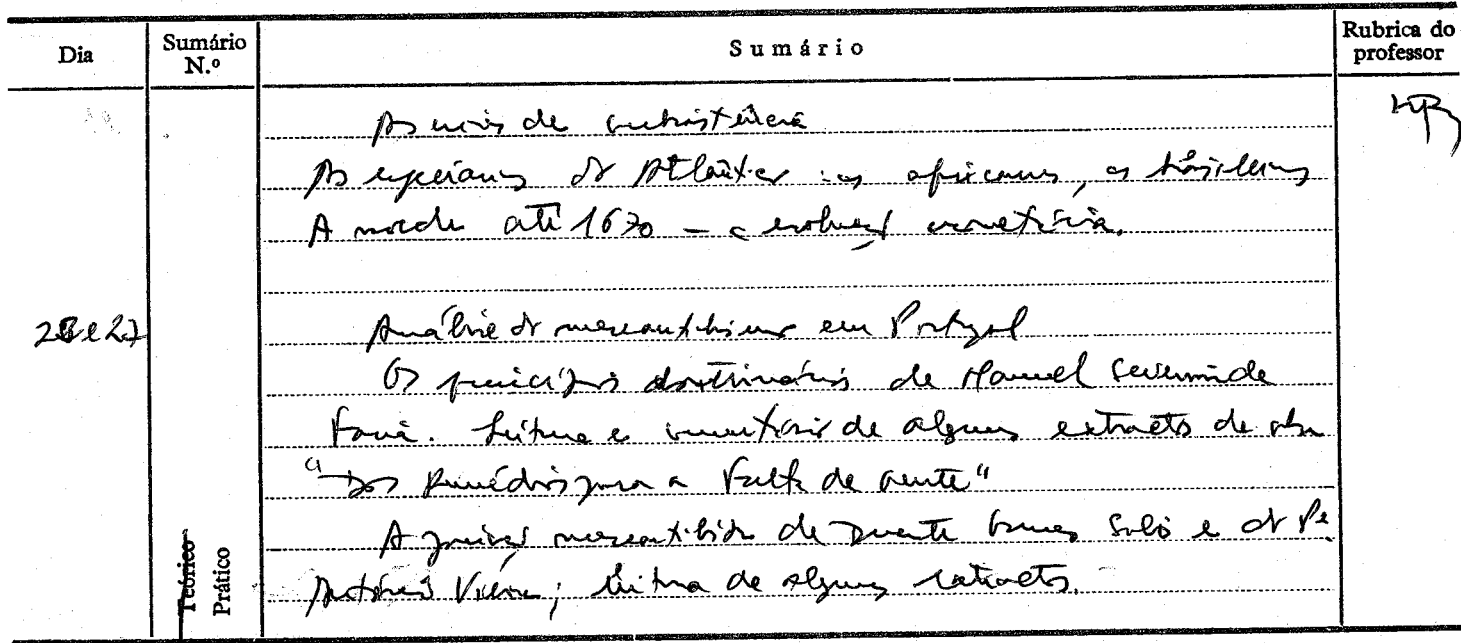 Dia
Sumário N.º
Sumário
Rubrica do professor
As crises de subsistência
As especiarias do Atlântico: as africanas, as brasileiras
A moeda até 1670 – a evolução monetária.
2 e 27
Análise do mercantilismo em Portugal
Os princípios doutrinários de Manuel Severim de
Faria. Leitura e comentário de alguns extractos da obra
"Dos Remédios para a Falta de Gente"
A posição mercantilista de Duarte Gomes Solis e do Pe
António Vieira; leitura de alguns extractos.
Teórico
Prático